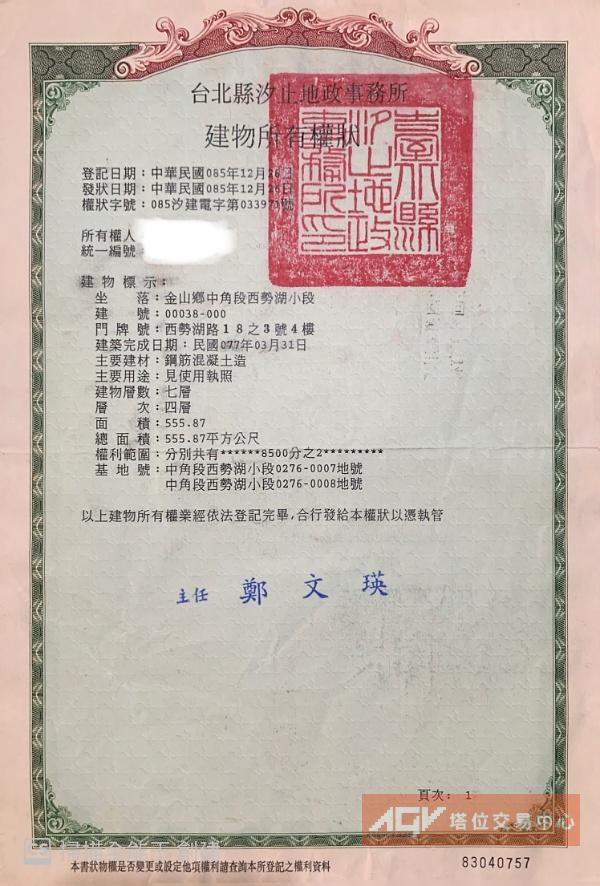 台北縣汐止地政事務所
建物所有權狀
臺北縣汐止地政事務所印
登記日期：中華民國085年12月26日
發狀日期：中華民國085年12月26日
權狀字號：085汐建電字第033971號
所有權人
統一編號：
建物標示：
坐 落：金山鄉中角段西勢湖小段
建 號：00038-000
門牌號：西勢湖路18之3號4樓
建築完成日期：民國077年03月31日
主要建材：鋼筋混凝土造
主要用途：見使用執照
建物層數：七層
層 次：四層
面 積：555.87
總面積：555.87平方公尺
權利範圍：分別共有******8500分之2*********
基地號：中角段西勢湖小段0276-0007地號
中角段西勢湖小段0276-0008地號
以上建物所有權業經依法登記完畢,合行發給本權狀以憑執管
主任 鄭文瑛
頁次: 1
AGV 塔位交易中心
CS 掃描全能王 創建
本書狀物權是否變更或設定他項權利請查詢本所登記之權利資料
83040757